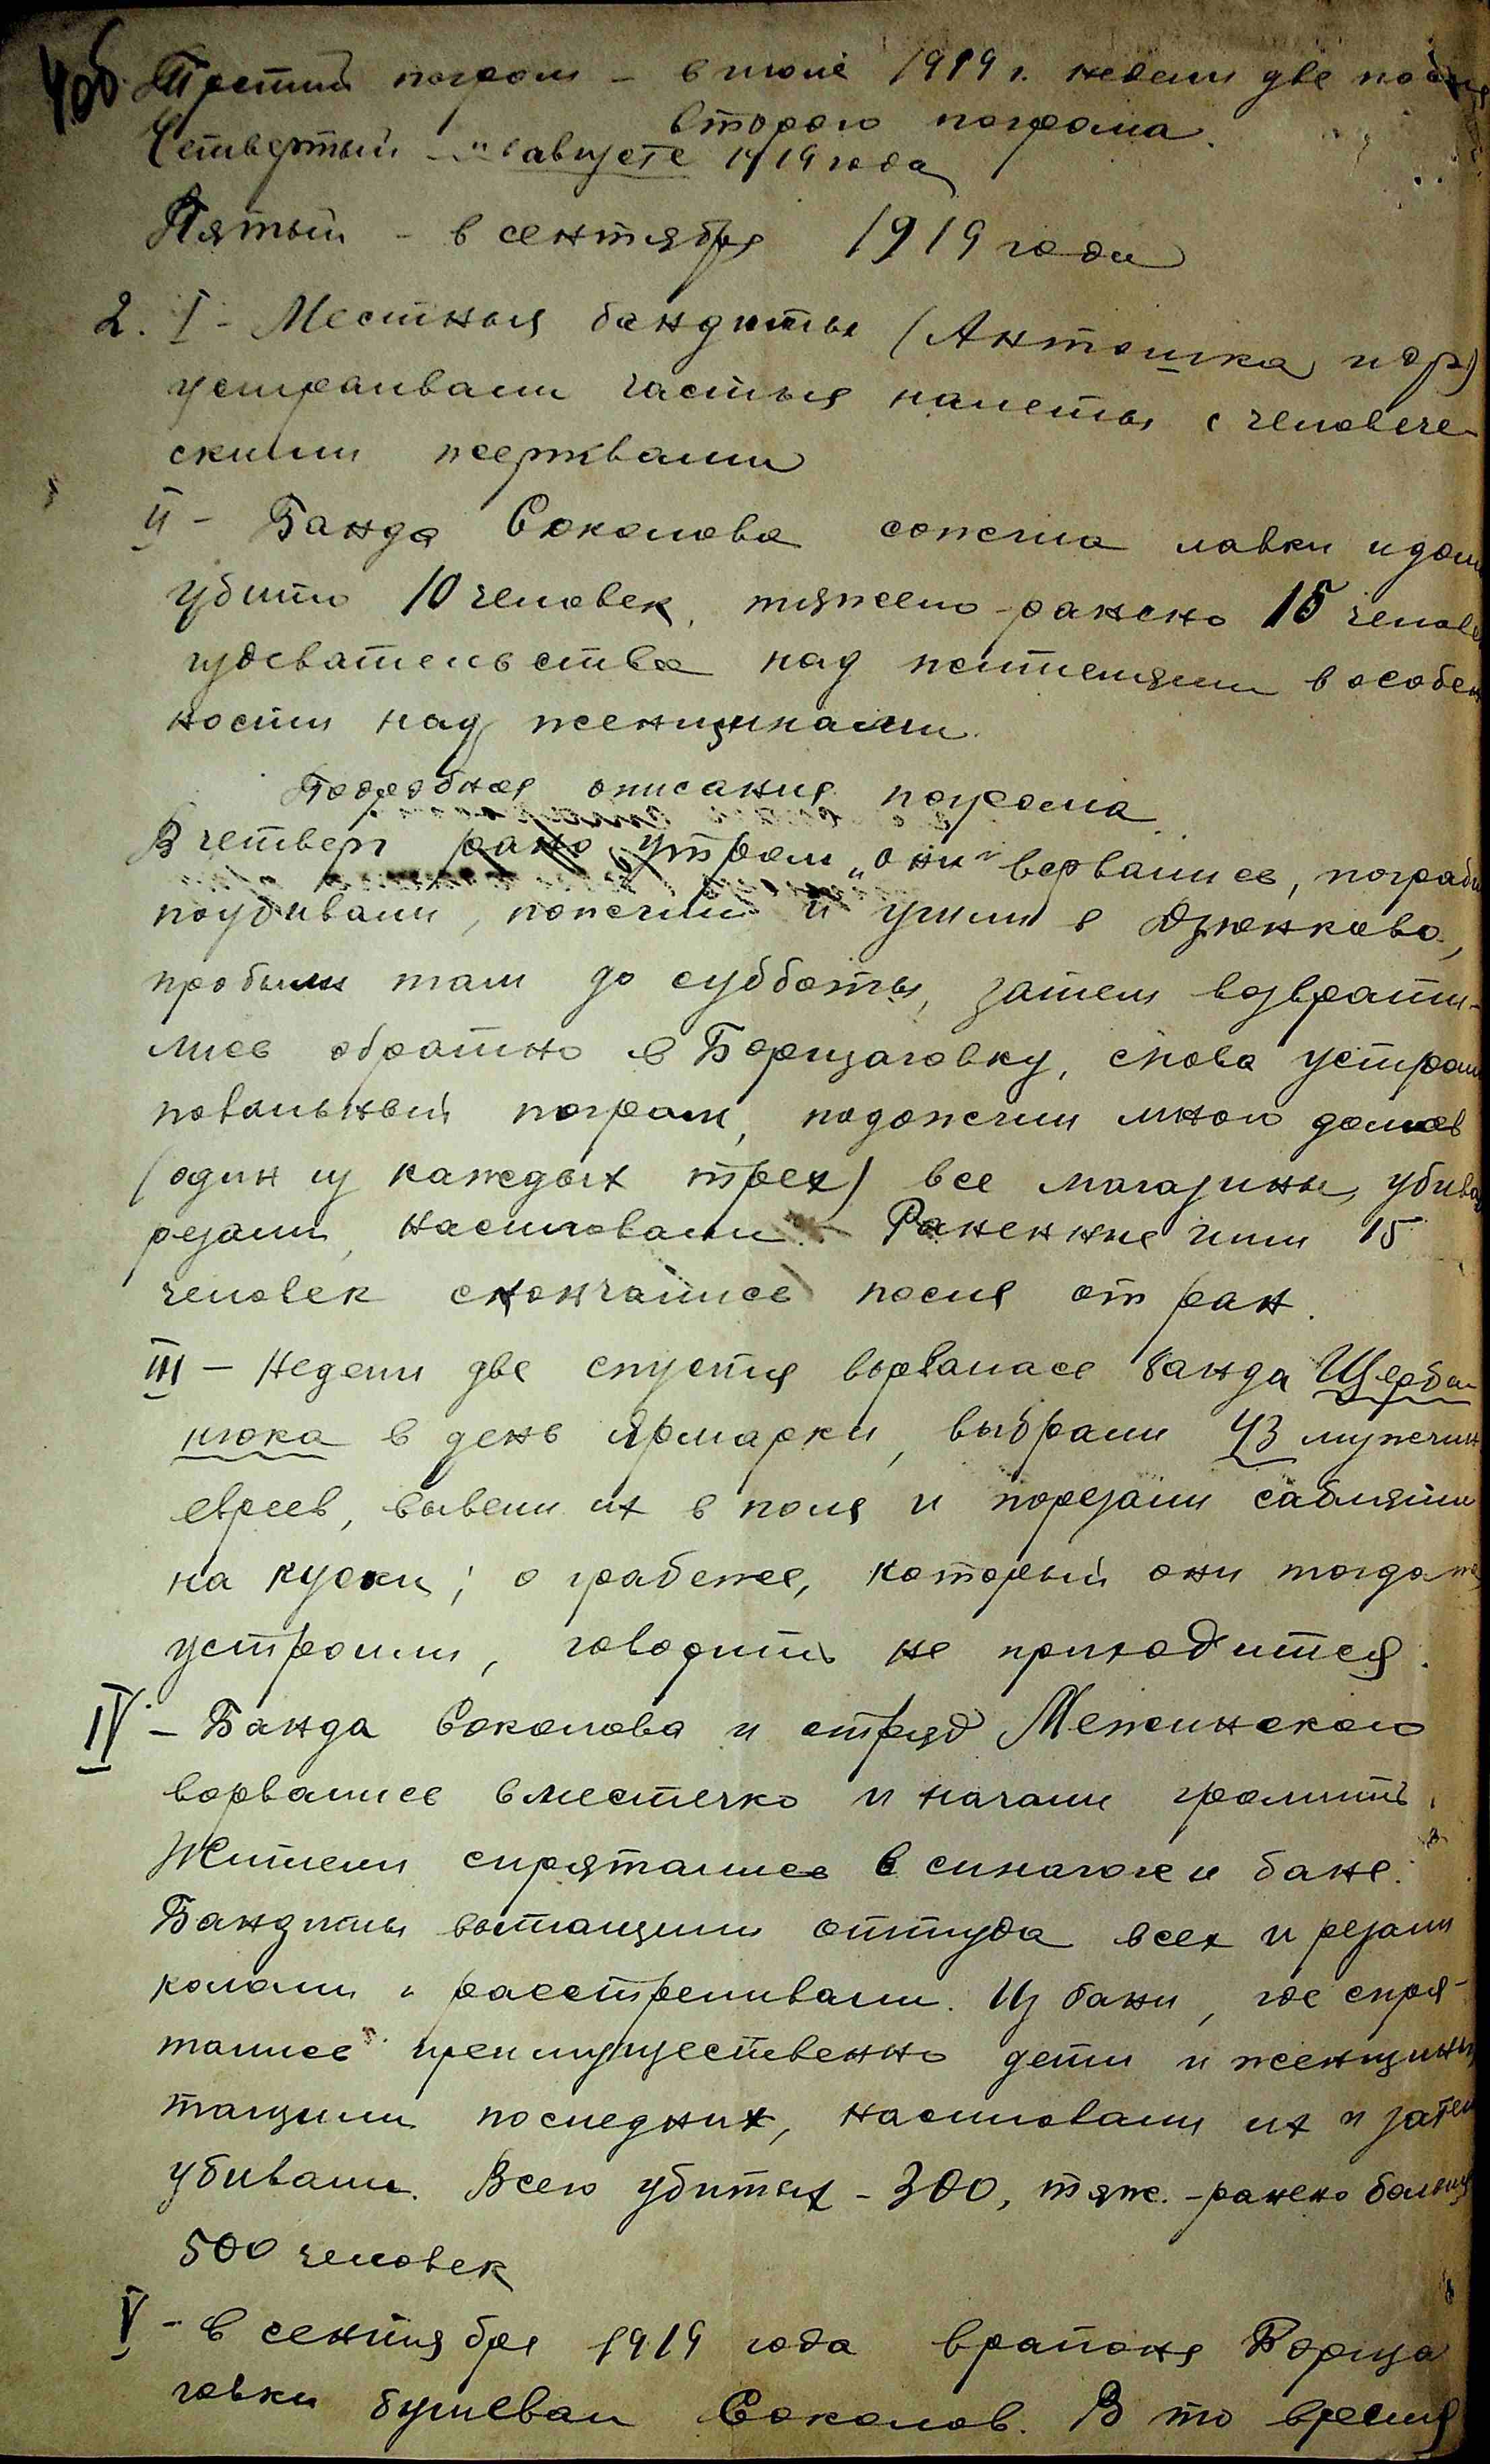 4об.
Третий погром – в июле 1919 г. недели две после
второго погрома.
Четвертый – " в августе 1919 года
Пятый – в сентябре 1919 года
2. I – Местныя бандиты (Антошка и др)
устраивали частыя налеты с человече-
скими жертвами
II – Банда Соколова сожгла лавки и дом
убито 10 человек, тяжело-ранено 15 челове
издевательства над жителями в особен
ности над женщинами.
Подробная описания погрома.
В четверг рано утром „они" ворвались, пограби
поубивали, пожгли и ушли в Дзюнково,
пробыли там до субботы, затем возврати-
лись обратно в Борщаговку, снова устроили
повальный погром, подожгли много домов
(один из каждых трех) все магазины, убива
резали, насиловали. Раненние ими 15
человек скончались после от ран.
III – Недели две спустя ворвалась банда Щерба-
нюка в день ярмарки, выбрали 43 мужчин
евреев, вывели их в поля и порезали саблями
на куски; о грабеже, который они тогда же
устроили, говорить не приходится.
IV – Банда Соколова и отряд Межинского
ворвались в местечко и начали громить.
Жители спрятались в синагоге и бане.
Бандиты вытащили оттуда всех и резали
кололи и расстреливали. Из бани, где спря-
тались преимущественно дети и женщины
тащили последних, насиловали их и затем
убивали. Всего убитых – 300, тяж.-ранено больше
500 человек
V – в сентябре 1919 года в районе Борща
говки бушевал Соколов. В то время